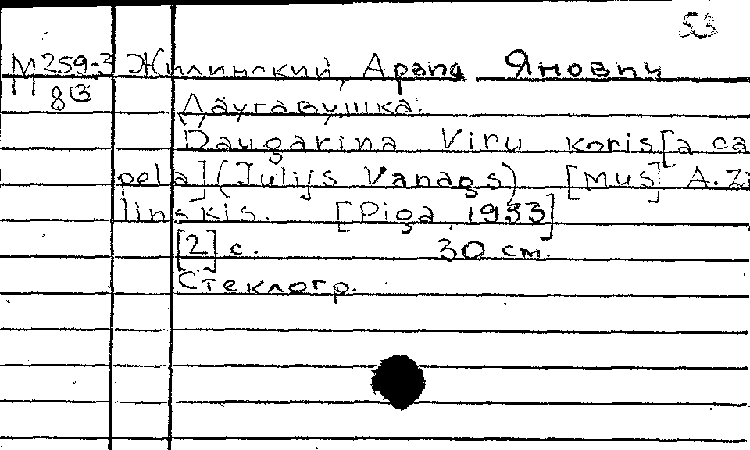 53
М259-3 Жилинский, Арвид Янович
М 83
Даугавушка.
Daugarina Viru koris [a ca
pela] (Julijs Vanags) [Mus] A. Zi
linskis. [Piga, 1933]
[2] с. 30 cm.
Стеклогр.